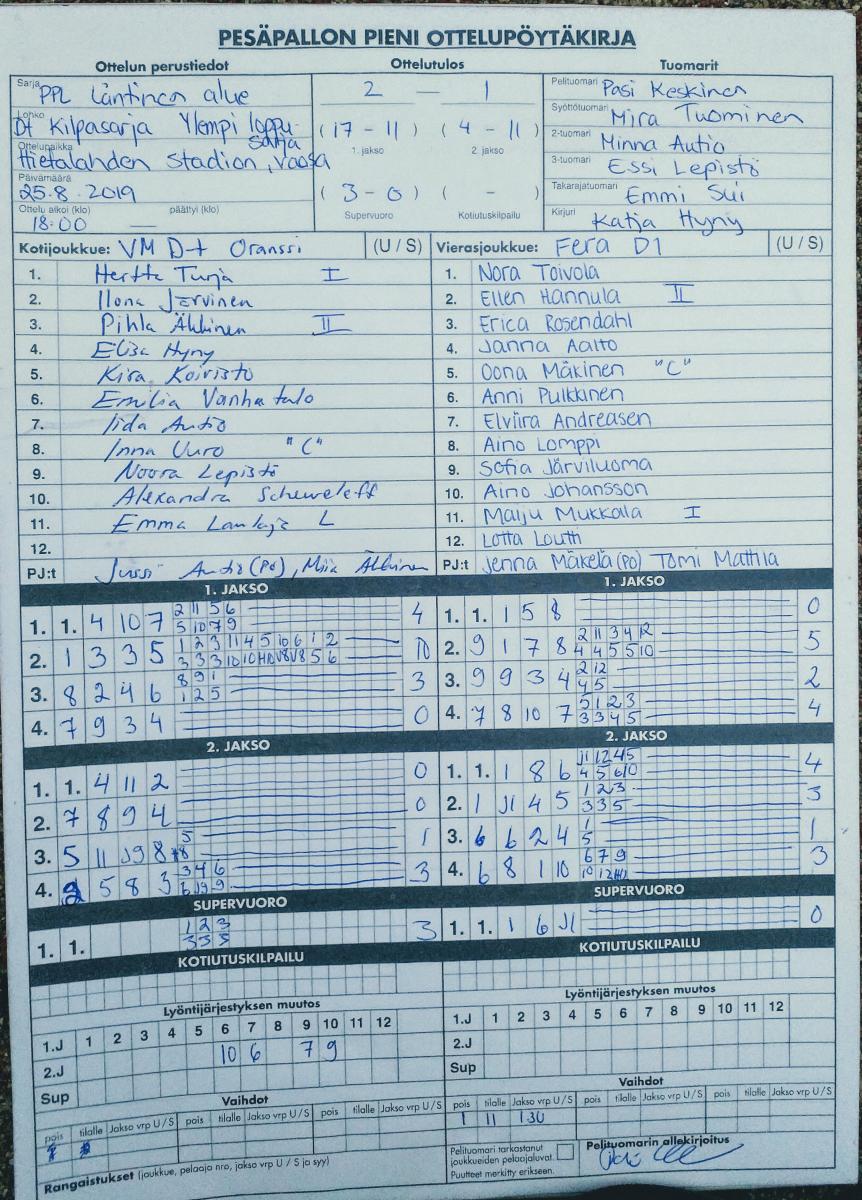 PESÄPALLON PIENI OTTELUPÖYTÄKIRJA
Ottelun perustiedot
Ottelutulos
Tuomarit
Sarja PPL Läntinen alue
Lohko D+ Kilpasarja Ylempi loppusarja
Ottelupaikka Hietalahden stadion, Vaasa
Päivämäärä 25.8.2019
Ottelu alkoi (klo) päättyi (klo)
18:00 —
2 — 1
(17 - 11) (4 - 11)
1. jakso 2 jakso
(3 - 0) ( - )
Supervuoro Kotiutuskilpailu
Pelituomari Pasi Keskinen
Syöttötuomari Mira Tuominen
2-tuomari Minna Autio
3-tuomari Essi Lepistö
Takarajatuomari Emmi Sui
Kirjuri Katja Hyny
Kotijoukkue: VM D+ Oranssi (U / S)
1. Hertta Turja I
2. Ilona Järvinen
3. Pihla Äkkinen II
4. Elisa Hyny
5. Kira Koivisto
6. Emilia Vanhatalo
7. Iida Autio
8. Inna Uuro "C"
9. Noora Lepistö
10. Alexandra Scheweleff
11. Emma L
12.
PJ:t Jussi Autio (PO), Miia Äkkinen
Vierasjoukkue: Fera D1 (U / S)
1. Nora Toivola
2. Ellen Hannula II
3. Erica Rosendahl
4. Janna Aalto
5. Oona Mäkinen "C"
6. Anni Pulkkinen
7. Elviira Andreasen
8. Aino Lomppi
9. Sofia Järviluoma
10. Aino Johansson
11. Maiju Mukkala I
12. Lotta Loutti
PJ:t Jenna Mäkelä (PO) Tomi Mattila
1. JAKSO
1. 1. 4 10 7 2 11 5 6 4
5 10 7 9
2. 1 3 3 5 1 2 3 11 4 5 10 6 1 2 10
3 3 3 10 10 5 6
3. 8 2 4 6 8 9 1 3
1 2 5
4. 7 9 3 4 0
2. JAKSO
1. 1. 4 11 2 0
2. 7 8 9 4 0
3. 5 11 J9 8 5 1
8
4. 5 8 3 3 4 6 3
6 J9 9
SUPERVUORO
1. 1. 1 2 3 3
3 3 3
KOTIUTUSKILPAILU
Lyöntijärjestyksen muutos
1.J 1 2 3 4 5 6 7 8 9 10 11 12
2.J 10 6 7 9
Sup
Vaihdot
pois tilalle Jakso vrp U / S pois tilalle Jakso vrp U / S pois tilalle Jakso vrp U / S
Rangaistukset (joukkue, pelaaja nro, jakso vrp U / S ja syy)
1. JAKSO
1. 1. 1 5 8 0
2. 9 1 7 8 2 11 3 4 12 5
4 4 5 5 10
3. 9 9 3 4 2 12 2
4 5
4. 7 8 10 7 5 1 2 3 4
3 3 4 5
2. JAKSO
1. 1. 1 8 6 J1 1 2 4 5 4
4 5 6 10
2. 1 J1 4 5 1 2 3 3
3 3 5
3. 6 6 2 4 1 1
5
4. 6 8 1 10 6 7 9 3
10 12
SUPERVUORO
1. 1. 1 6 J1 0
KOTIUTUSKILPAILU
Lyöntijärjestyksen muutos
1.J 1 2 3 4 5 6 7 8 9 10 11 12
2.J
Sup
Vaihdot
pois tilalle Jakso vrp U / S pois tilalle Jakso vrp U / S pois tilalle Jakso vrp U / S
1 11
Pelituomari tarkastanut joukkueiden pelaajaluvat.
Puutteet merkitty erikseen.
Pelituomarin allekirjoitus